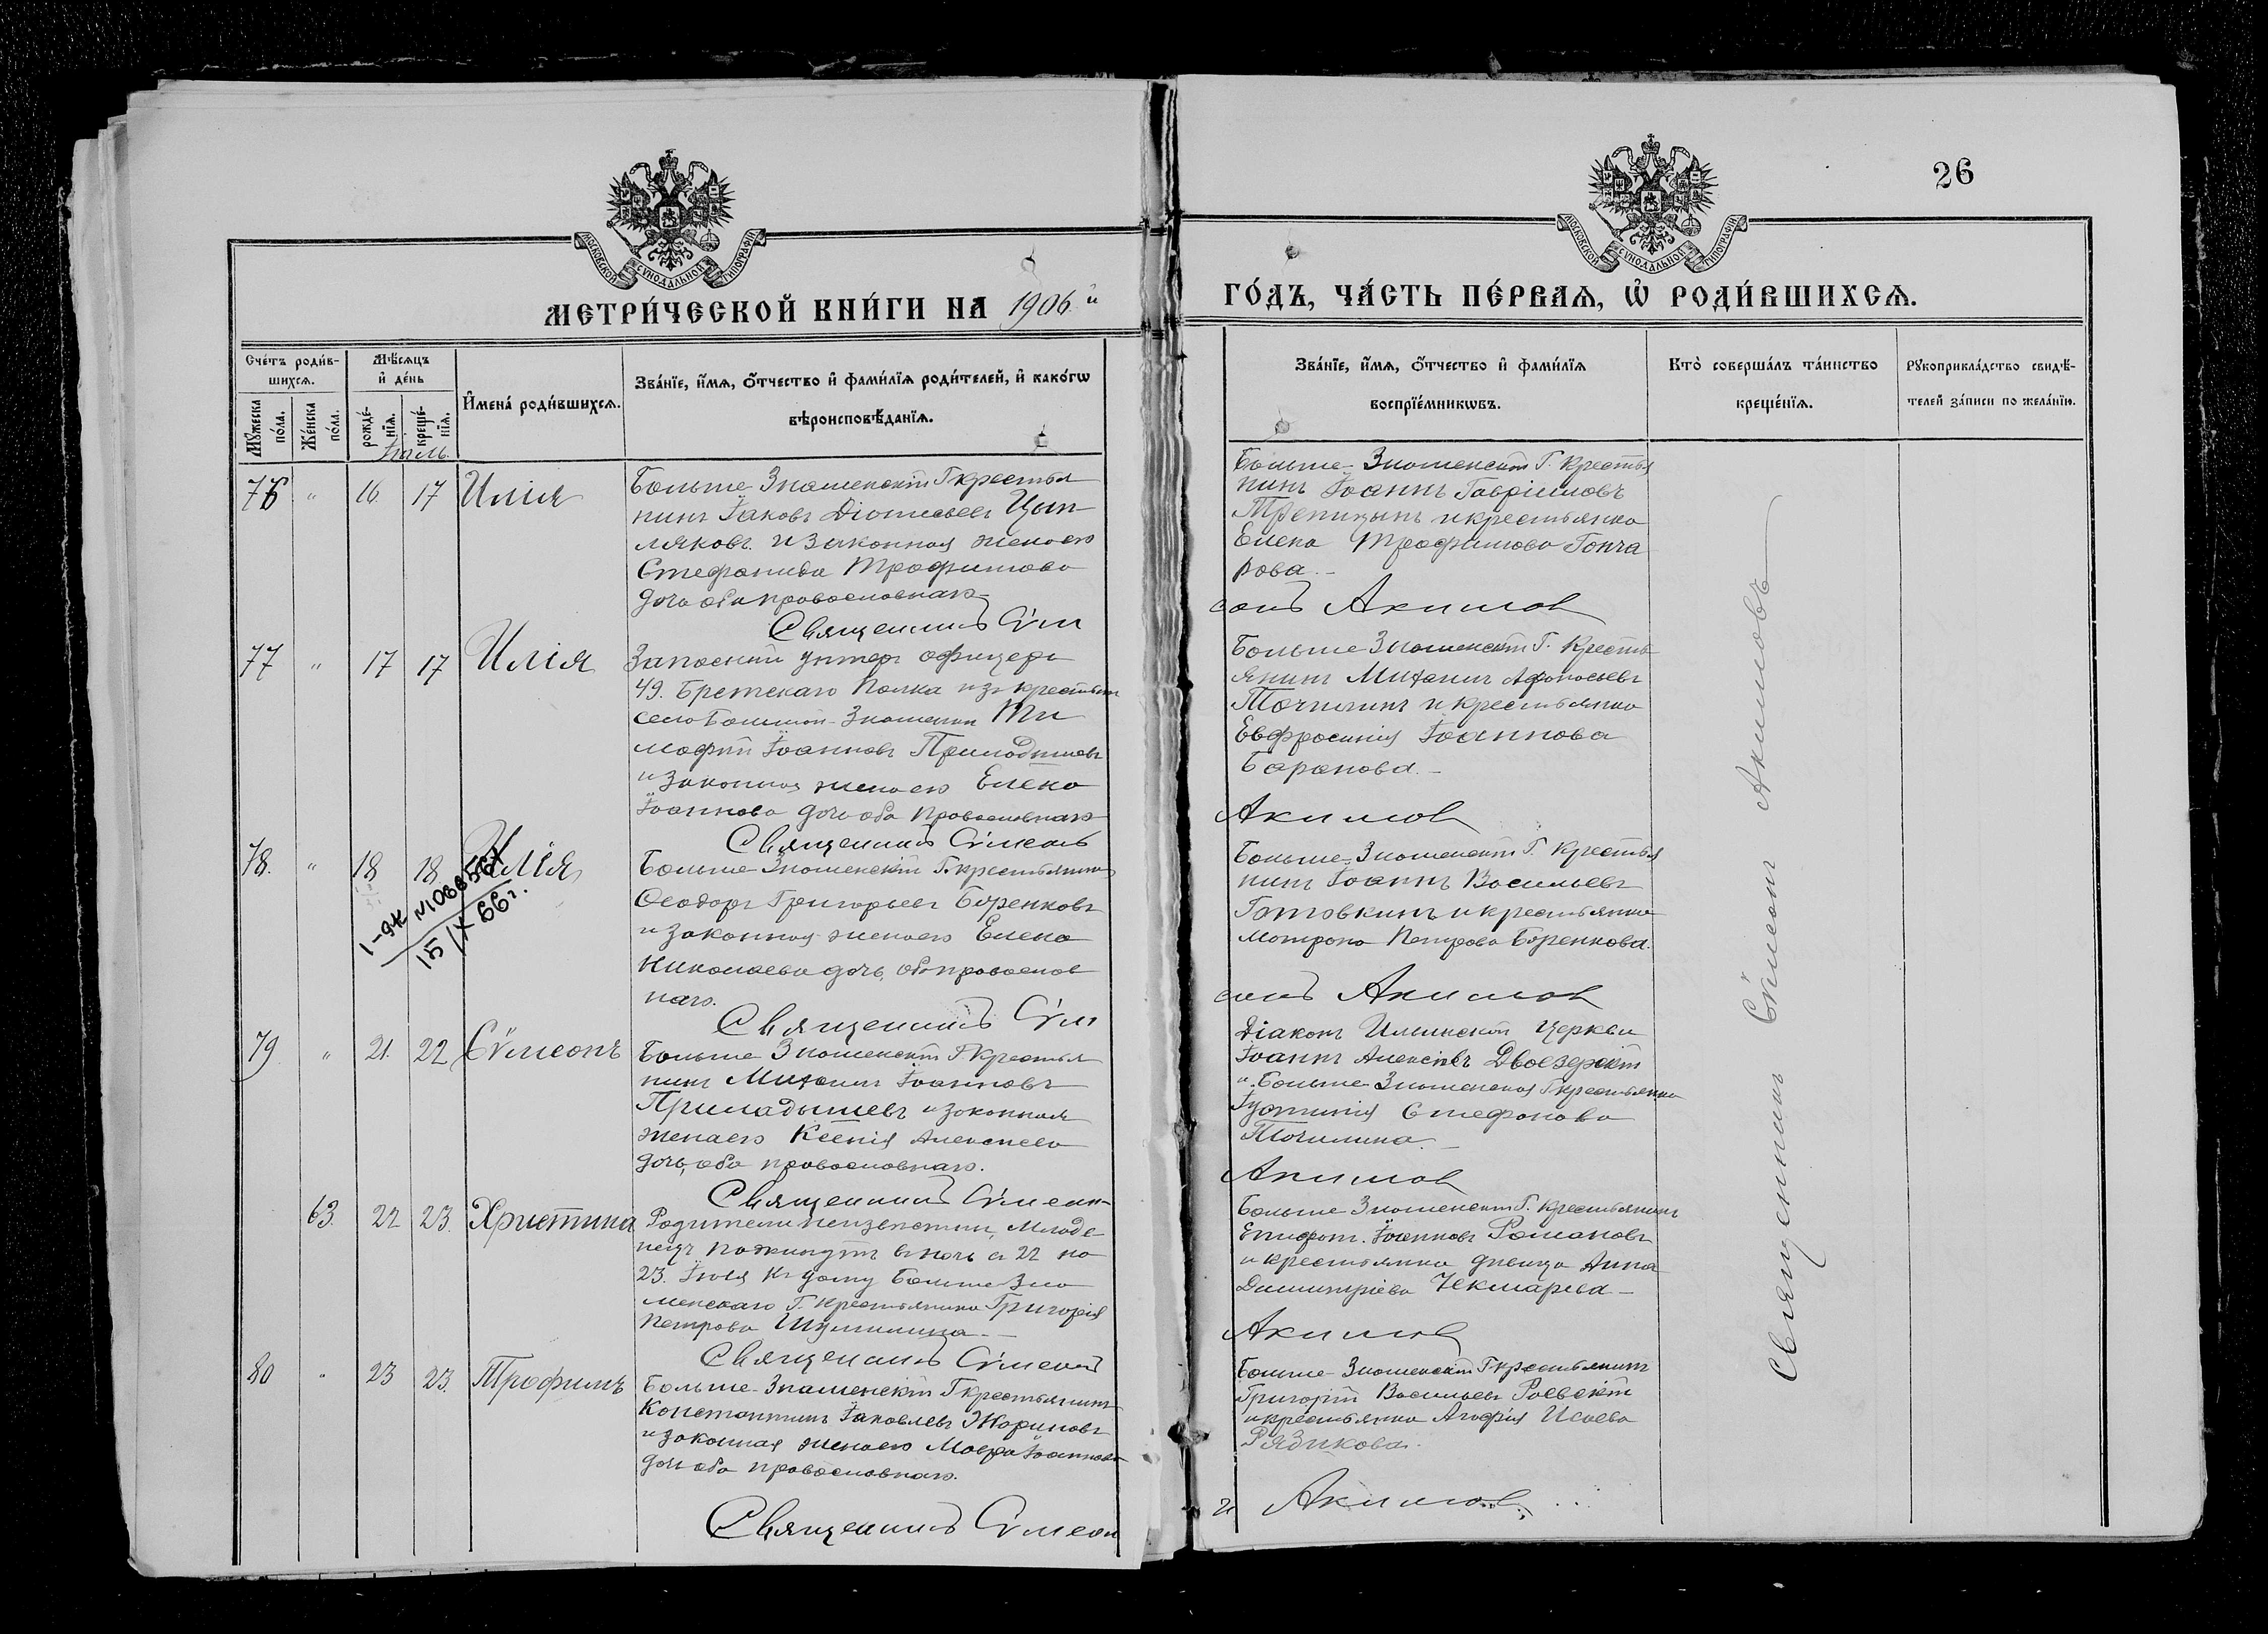 26
МОСКОВСКОЙ СѴНОДАЛЬНОЙ ТИПОГРАФІИ
МОСКОВСКОЙ СѴНОДАЛЬНОЙ ТИПОГРАФІИ
МЕТРИ́ЧЕСКОЙ КНИ́ГИ НА 1906й
ГО́ДЪ, ЧА́СТЬ ПЕ́РВАѦ, Ѡ҆ РОДИ́ВШИХСѦ.
Сче́тъ роди́в-
шихсѧ.
Мꙋ́жеска по́ла.
Же́нска по́ла.
Мѣ́сѧцъ
и҆ де́нь
рожде́-
нїѧ.
креще́-
нїѧ.
И҆мена́ роди́вшихсѧ.
Зва́нїе, и҆́мѧ, ѻ҆́тчество и҆ фами́лїѧ роди́телей, и҆ како́гѡ
вѣроисповѣ́данїѧ.
Зва́нїе, и҆́мѧ, ѻ҆́тчество и҆ фами́лїѧ
воспрїе́мникѡвъ.
Кто̀ соверша́лъ та́инство
креще́нїѧ.
Рꙋкоприкла́дство свидѣ́-
телей за́писи по жела́нїю.
Іюль.
76 " 16 17 Илія
Больше Знаменскій Г крестья
нинъ Іаковъ Діонисьевъ Цып-
ляковъ и законная жена его
Стефанида Трофимова
дочь оба православнаго
Священникъ Сѵм
Больше-Знаменскій Г. крестья
нинъ Іоаннъ Гавріиловъ
Трепицынъ и крестьянка
Елена Трофимова Гонча
рова.-
еонъ Акимов
77 " 17 17 Илія
Запасный унтеръ офицеръ
49. Брестскаго Полка изъ крестьян
села Большой-Знаменки Ти
мофей Іоанновъ Приладышевъ
и законная жена его Елена
Іоаннова дочь оба православнаго
Священникъ Сѵмеонъ
Больше Знаменскій Г. Кресть
янинъ Михаилъ Афанасьевъ
Точилинъ и крестьянка
Евфросинія Іоаннова
Баранова.-
Акимов
78. " 18 18 Илія
1-ЯК № 088567
15/IX 66г.
Больше-Знаменскій Г. крестьянинъ
Ѳеодоръ Григорьевъ Буренковъ
и законная жена его Елена
Николаева дочь, оба православ
наго.
Священникъ Сѵм
Больше-Знаменскій Г. Крестья
нинъ Іоаннъ Васильевъ
Готовкинъ и крестьянка
Матрона Петрова Буренкова.
еонъ Акимов
79 " 21. 22 Сѵмеонъ
Больше Знаменскій Г крестья
нинъ Михаилъ Іоанновъ
Приладышевъ и законная
жена его Ксенія Алексеева
дочь, оба православнаго.
Священникъ Сѵмеонъ
Діаконъ Ильинской Церкви
Іоаннъ Алексіевъ Двоезерскій
и Больше-Знаменская Г крестьянка
Іустинія Стефанова
Точилина.-
Акимов
63. 22 23. Христина
Родители неизвестны, Младе
нецъ подкинутъ въ ночь съ 22 на
23. Іюля къ дому Больше Зна
менскаго Г. Крестьянина Григорія
Петрова Шумилина.-
Священникъ Сѵмеон
Больше Знаменскій Г. Крестьянинъ
Епифан. Іоанновъ Романовъ
и крестьянка девица Анна
Димитріева Чекмарева-
Акимов
80 " 23 23. Трофимъ
Больше-Знаменскій Г крестьянинъ
Константинъ Іаковлевъ Жариновъ
и законная жена его Мавра Іоаннова
дочь оба православнаго.
Священникъ Сѵмеон
Больше-Знаменскій Г крестьянинъ
Григорій Васильевъ Раевскій
и крестьянка Агафія Исаева
Рязикова.
ъ Акимов
Священникъ Сѵмеонъ Акимовъ